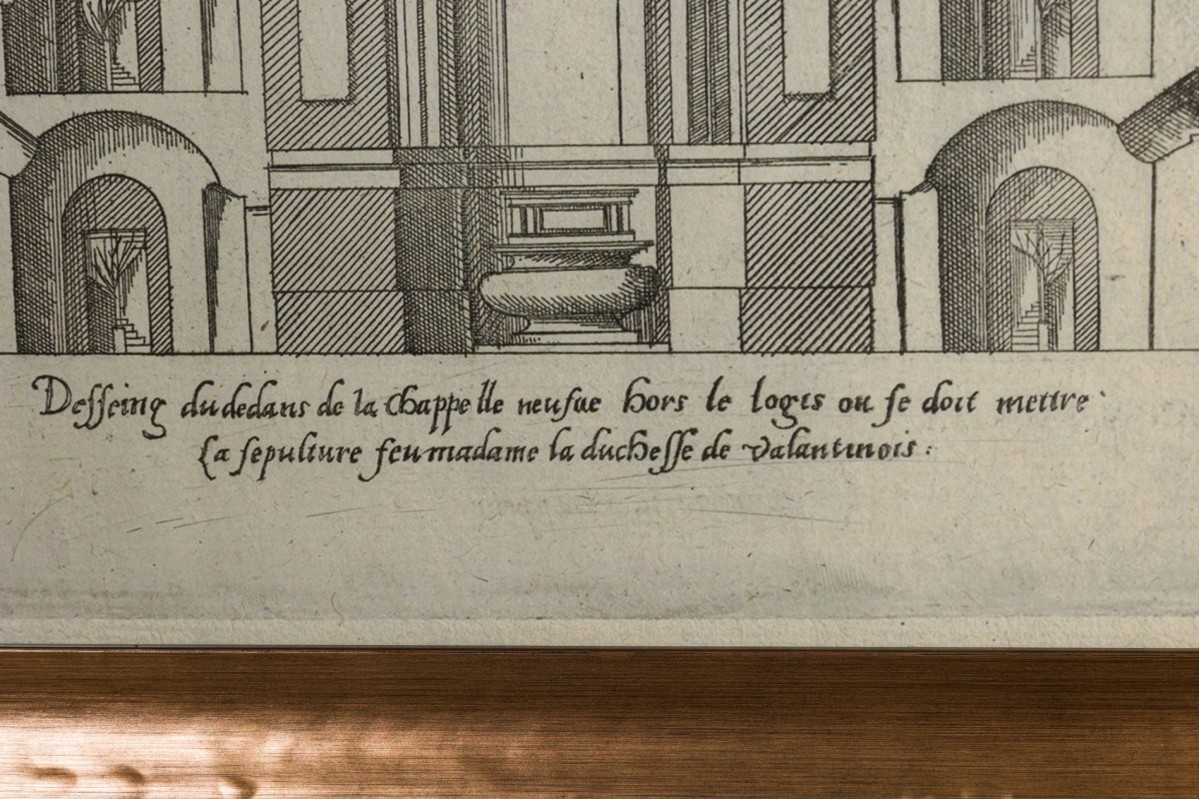 Desseing du dedans de la chappelle neufue hors le logis ou se doit mettre
La sepulture feu madame la duchesse de valantinois :